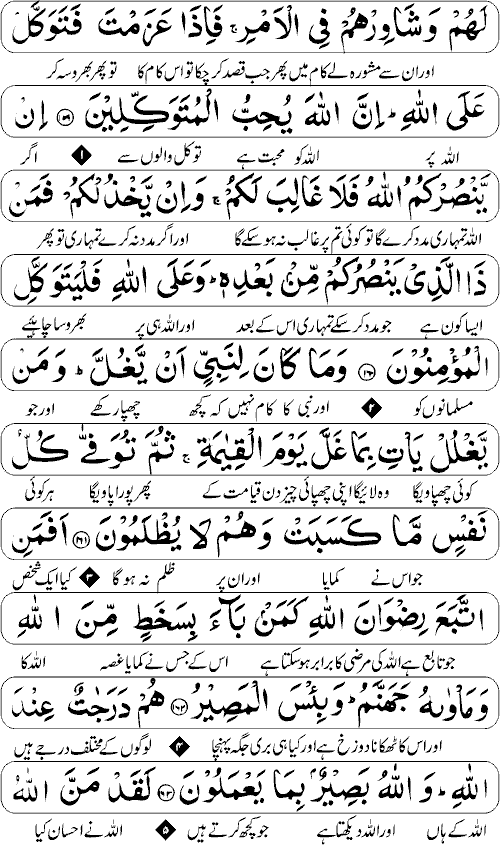 لَهُمْ وَشَاوِرْهُمْ فِي الْاَمْرِ ۚ فَاِذَا عَزَمْتَ فَتَوَكَّلْ
اور ان سے مشورہ لے کام میں پھر جب قصد کر چکا تو اس کام کا تو پھر بھروسہ کر
عَلَى اللّٰهِ ؕ اِنَّ اللّٰهَ يُحِبُّ الْمُتَوَكِّلِيْنَ ۝۱۵۹ اِنْ
اللہ پر اللہ کو محبت ہے توکل والوں سے ۱ اگر
يَّنْصُرْكُمُ اللّٰهُ فَلَا غَالِبَ لَكُمْ ۚ وَاِنْ يَّخْذُلْكُمْ فَمَنْ
اللہ تمہاری مدد کرے گا تو کوئی تم پر غالب نہ ہو سکے گا اور اگر مدد نہ کرے تمہاری تو پھر
ذَا الَّذِيْ يَنْصُرُكُمْ مِّنْۢ بَعْدِهٖ ؕ وَعَلَى اللّٰهِ فَلْيَتَوَكَّلِ
ایسا کون ہے جو مدد کر سکے تمہاری اس کے بعد اور اللہ ہی پر بھروسا چاہیے
الْمُؤْمِنُوْنَ ۝۱۶۰ وَمَا كَانَ لِنَبِيٍّ اَنْ يَّغُلَّ ؕ وَمَنْ
مسلمانوں کو ۲ اور نبی کا کام نہیں کہ کچھ چھپا رکھے اور جو
يَّغْلُلْ يَاْتِ بِمَا غَلَّ يَوْمَ الْقِيٰمَةِ ۚ ثُمَّ تُوَفّٰى كُلُّ
کوئی چھپاویگا وہ لائیگا اپنی چھپائی چیز دن قیامت کے پھر پورا پاویگا ہر کوئی
نَفْسٍ مَّا كَسَبَتْ وَهُمْ لَا يُظْلَمُوْنَ ۝۱۶۱ اَفَمَنِ
جو اس نے کمایا اور ان پر ظلم نہ ہوگا ۳ کیا ایک شخص
اتَّبَعَ رِضْوَانَ اللّٰهِ كَمَنْۢ بَآءَ بِسَخَطٍ مِّنَ اللّٰهِ
جو تابع ہے اللہ کی مرضی کا برابر ہو سکتا ہے اس کے جس نے کمایا غصہ اللہ کا
وَمَاْوٰىهُ جَهَنَّمُ ؕ وَبِئْسَ الْمَصِيْرُ ۝۱۶۲ هُمْ دَرَجٰتٌ عِنْدَ
اور اس کا ٹھکانا دوزخ ہے اور کیا ہی بری جگہ پہنچا ۴ لوگوں کے مختلف درجے ہیں
اللّٰهِ ؕ وَاللّٰهُ بَصِيْرٌۢ بِمَا يَعْمَلُوْنَ ۝۱۶۳ لَقَدْ مَنَّ اللّٰهُ
اللہ کے ہاں اور اللہ دیکھتا ہے جو کچھ کرتے ہیں ۵ اللہ نے احسان کیا